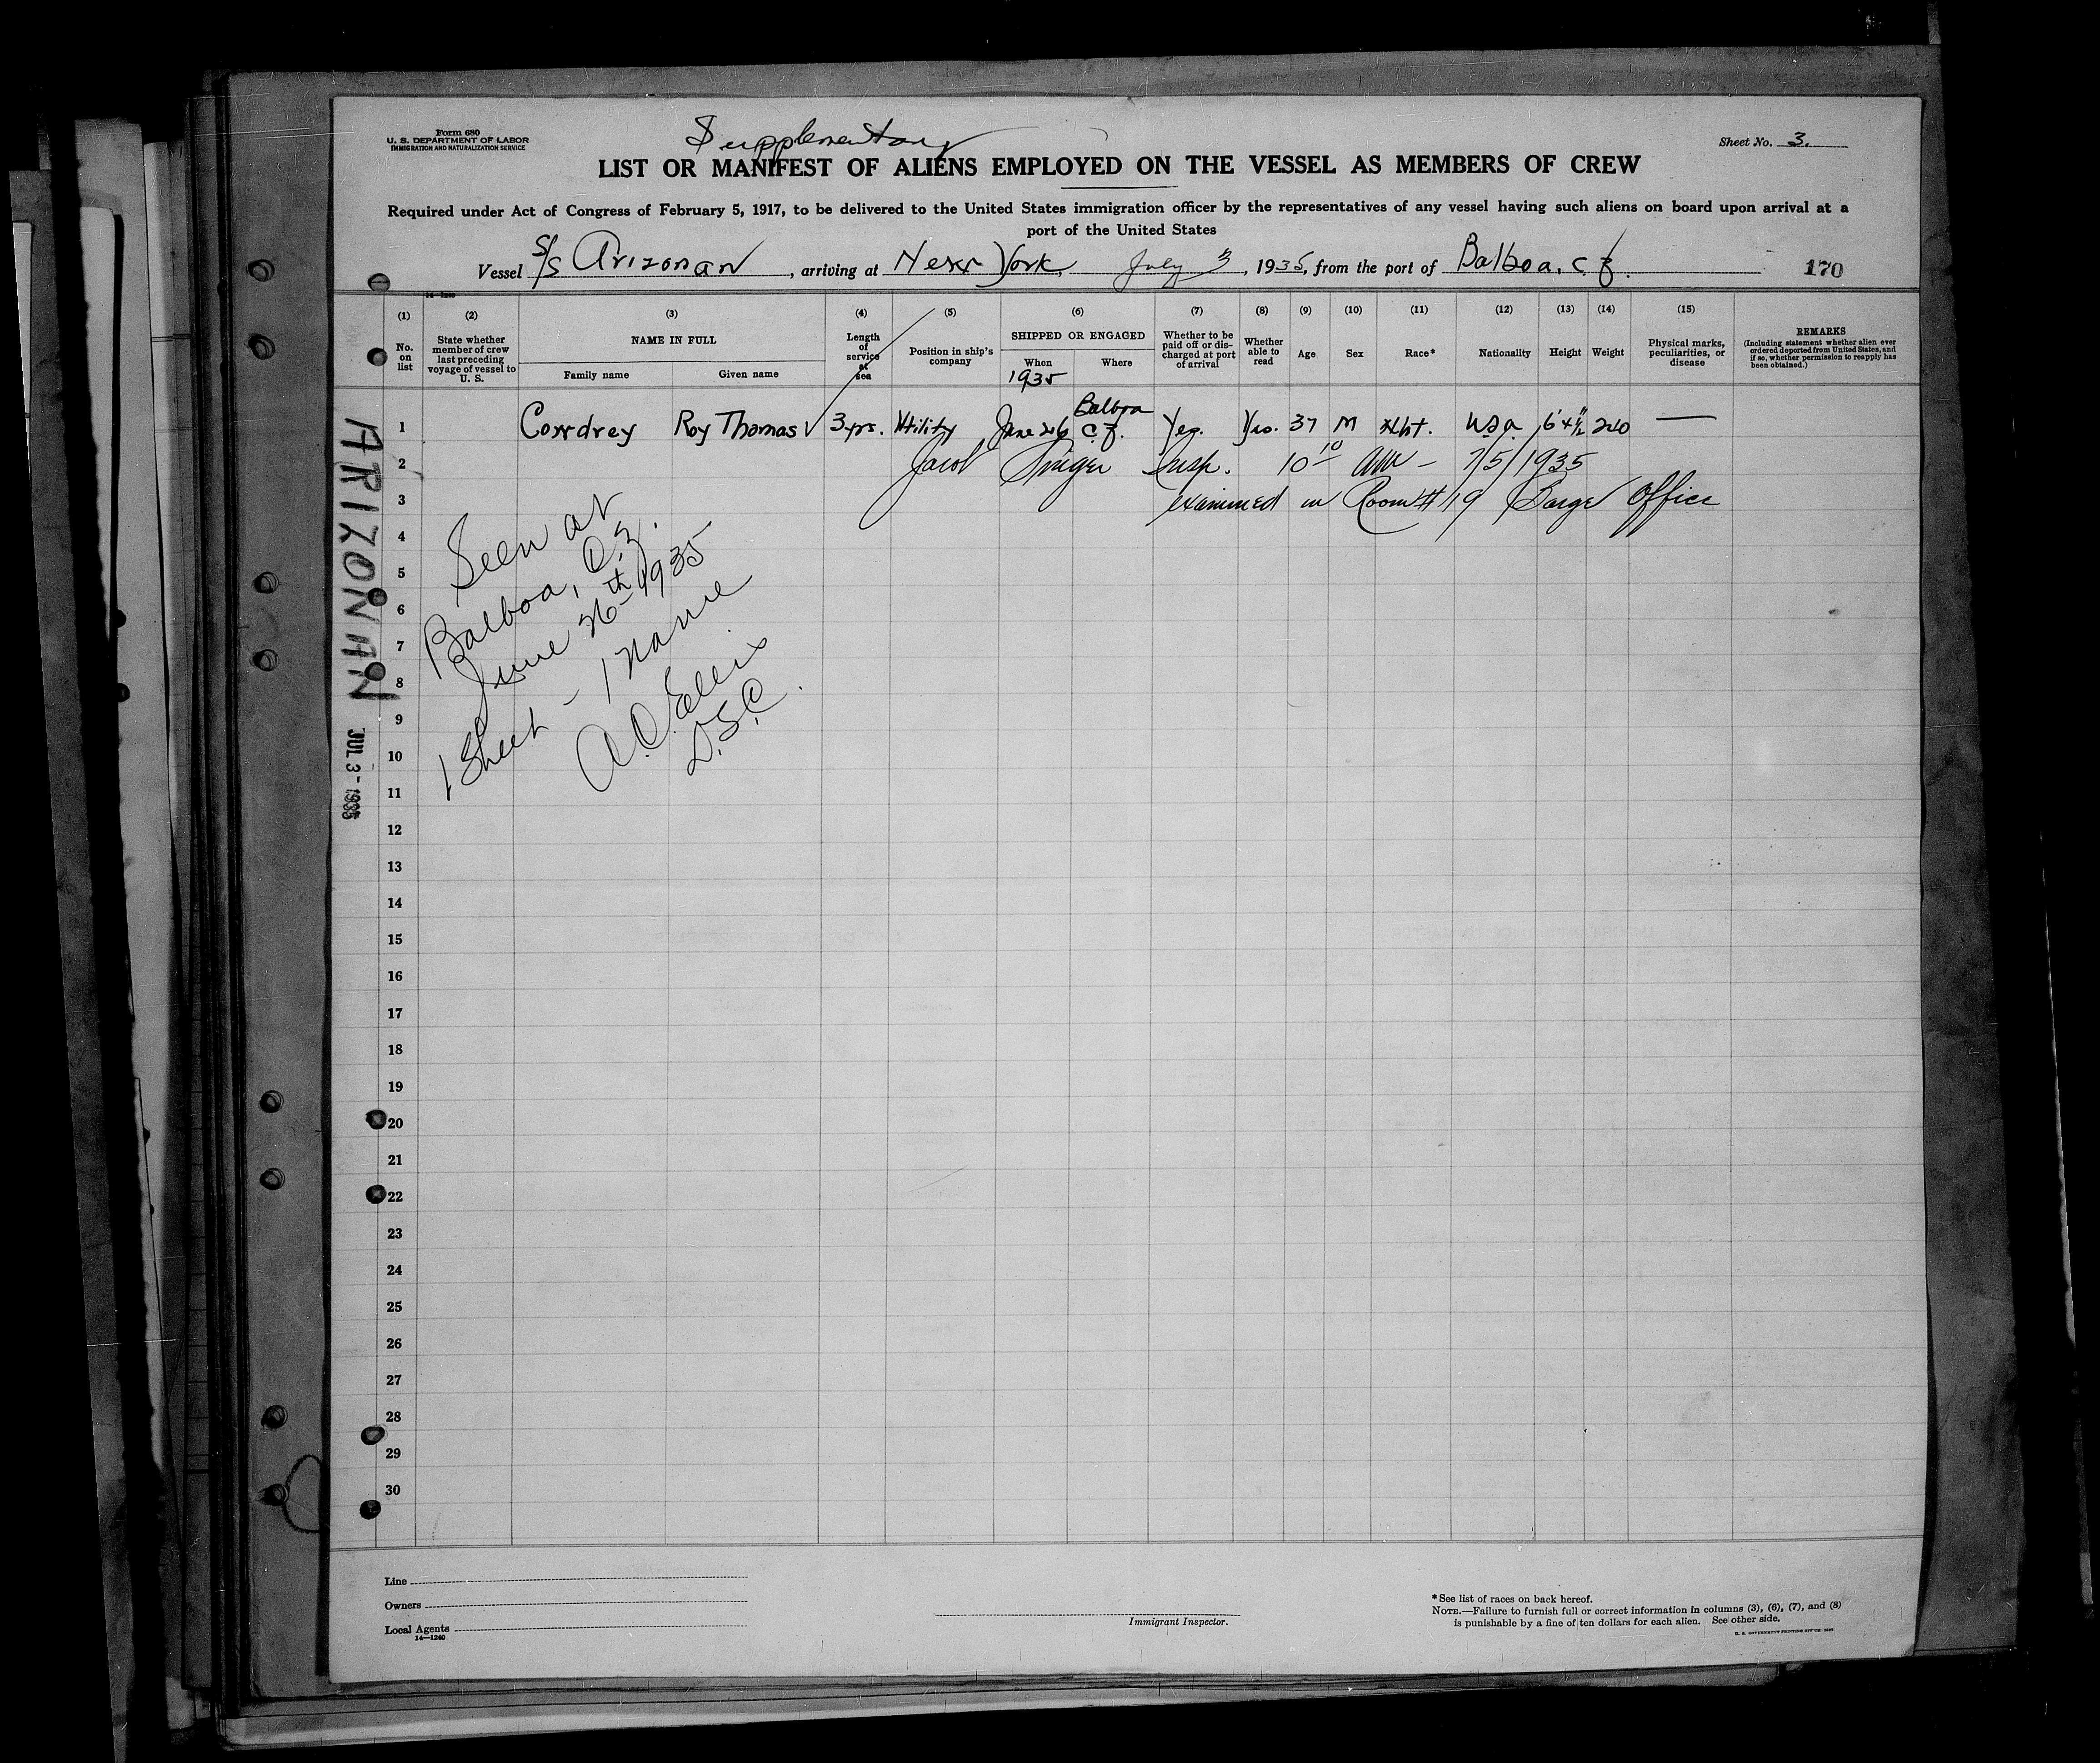 Form 680
U. S. DEPARTMENT OF LABOR
IMMIGRATION AND NATURALIZATION SERVICE
Supplementary
Sheet No. 3.
LIST OR MANIFEST OF ALIENS EMPLOYED ON THE VESSEL AS MEMBERS OF CREW
Required under Act of Congress of February 5, 1917, to be delivered to the United States immigration officer by the representatives of any vessel having such aliens on board upon arrival at a
port of the United States
Vessel S/S Arizonan, arriving at New York, July 3, 1935, from the port of Balboa, C.Z. 170
14—1240
(1) (2) (3) (4) (5) (6) (7) (8) (9) (10) (11) (12) (13) (14) (15)
No. on list
State whether member of crew last preceding voyage of vessel to U. S.
NAME IN FULL
Family name Given name
Length of service at sea
Position in ship's company
SHIPPED OR ENGAGED
When Where
1935
Whether to be paid off or discharged at port of arrival
Whether able to read
Age
Sex
Race*
Nationality
Height
Weight
Physical marks, peculiarities, or disease
REMARKS
(Including statement whether alien ever ordered deported from United States, and if so, whether permission to reapply has been obtained.)
1 Cowdrey Roy Thomas √ 3 yrs. Utility June 26 Balboa C.Z. Yes. Yes. 37 M Wht. USA 6'4½" 240 —
2 Jacob Singer Insp. 10 10 AM — 7/5/1935
3 examined in Room # 19 Barge Office
4
5
6
7
8
9
10
11
12
13
14
15
16
17
18
19
20
21
22
23
24
25
26
27
28
29
30
Seen at
Balboa, C.Z.
June 26th 1935
1 Sheet - 1 Name
A.C. Ellis
D.S.C.
ARIZONAN
JUL 3 - 1935
Line
Owners
Local Agents
14—1240
Immigrant Inspector.
* See list of races on back hereof.
NOTE.—Failure to furnish full or correct information in columns (3), (6), (7), and (8)
is punishable by a fine of ten dollars for each alien. See other side.